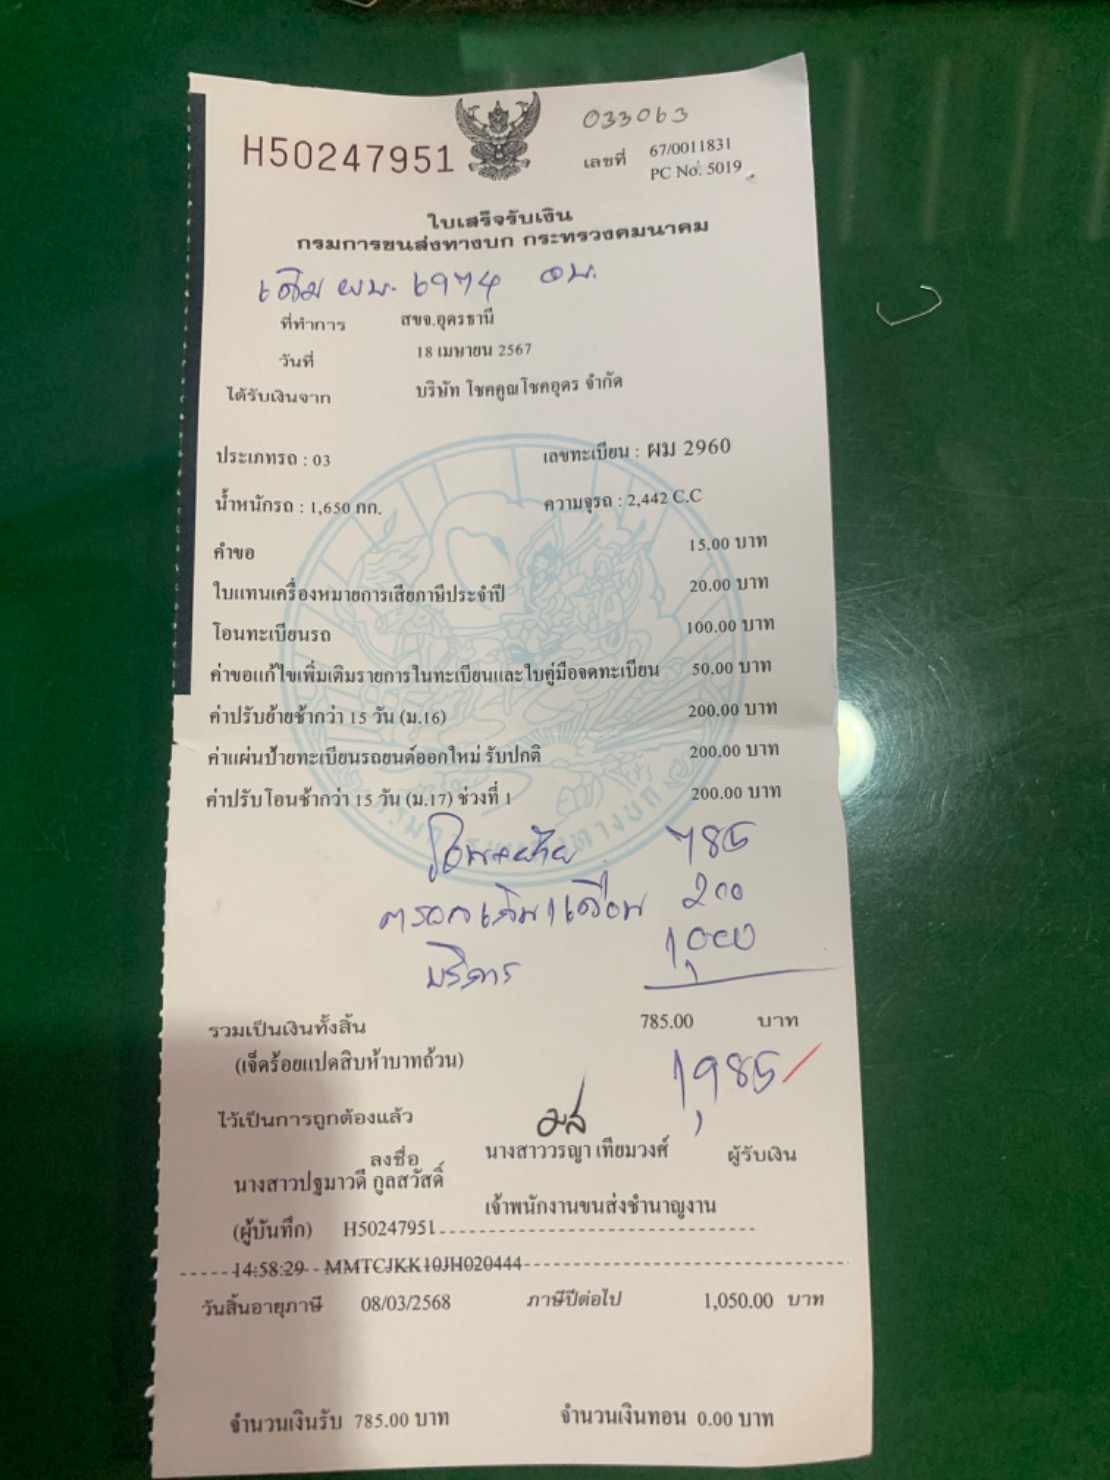 033063
H50247951
เลขที่ 67/0011831
PC No. 5019
ใบเสร็จรับเงิน
กรมการขนส่งทางบก กระทรวงคมนาคม
เดิม ผบ. 6974 อบ.
ที่ทำการ สขจ.อุดรธานี
วันที่ 18 เมษายน 2567
ได้รับเงินจาก บริษัท โชคคูณโชคอุดร จำกัด
ประเภทรถ : 03 เลขทะเบียน : ผม 2960
น้ำหนักรถ : 1,650 กก. ความจุรถ : 2,442 C.C
คำขอ 15.00 บาท
ใบแทนเครื่องหมายการเสียภาษีประจำปี 20.00 บาท
โอนทะเบียนรถ 100.00 บาท
ค่าขอแก้ไขเพิ่มเติมรายการในทะเบียนและใบคู่มือจดทะเบียน 50.00 บาท
ค่าปรับย้ายช้ากว่า 15 วัน (ม.16) 200.00 บาท
ค่าแผ่นป้ายทะเบียนรถยนต์ออกใหม่ รับปกติ 200.00 บาท
ค่าปรับโอนช้ากว่า 15 วัน (ม.17) ช่วงที่ 1 200.00 บาท
โอน+ย้าย 785
200
บริการ 1,000
รวมเป็นเงินทั้งสิ้น 785.00 บาท
(เจ็ดร้อยแปดสิบห้าบาทถ้วน)
1,985
ไว้เป็นการถูกต้องแล้ว
ลงชื่อ นางสาววรญา เทียมวงศ์ ผู้รับเงิน
นางสาวปฐมาวดี กูลสวัสดิ์
เจ้าพนักงานขนส่งชำนาญงาน
(ผู้บันทึก) H50247951
14:58:29 MMTCJKK10JH020444
วันสิ้นอายุภาษี 08/03/2568 ภาษีปีต่อไป 1,050.00 บาท
จำนวนเงินรับ 785.00 บาท จำนวนเงินทอน 0.00 บาท